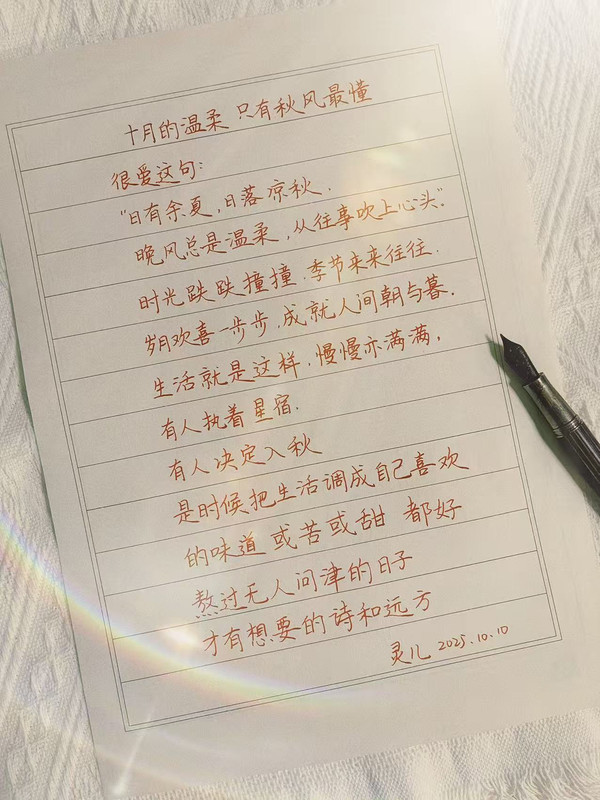 十月的温柔 只有秋风最懂
很爱这句:
"日有余夏,日落凉秋.
晚风总是温柔,从往事吹上心头".
时光跌跌撞撞.季节来来往往.
岁月欢喜一步步,成就人间朝与暮.
生活就是这样.慢慢亦满满,
有人执着星宿.
有人决定入秋
是时候把生活调成自己喜欢
的味道 或苦或甜 都好
熬过无人问津的日子
才有想要的诗和远方
灵儿 2025.10.10